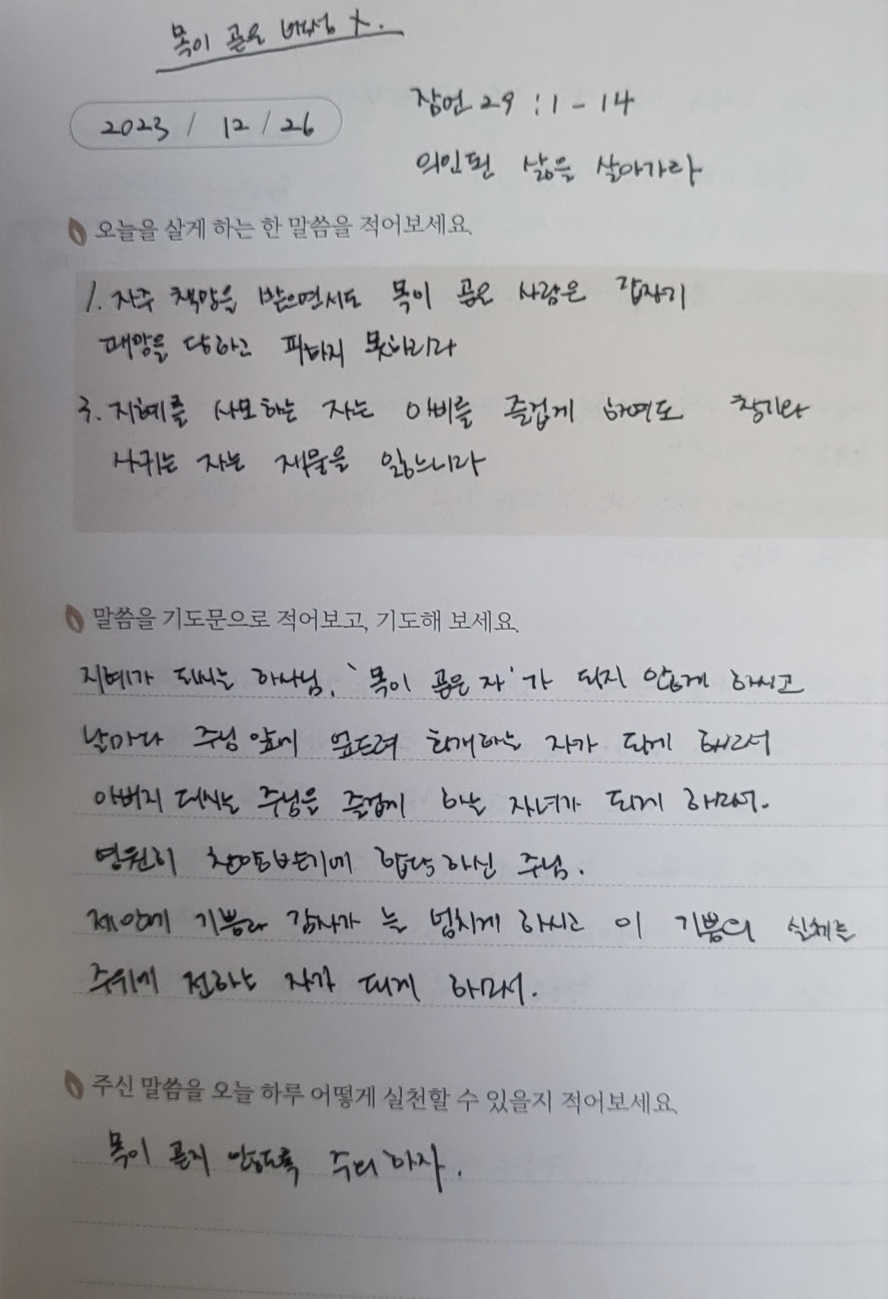 목이 곧은 백성 X.
2023 / 12 / 26
잠언 29 : 1 - 14
의인된 삶을 살아가라
오늘을 살게 하는 한 말씀을 적어보세요.
1. 자주 책망을 받으면서도 목이 곧은 사람은 갑자기
패망을 당하고 피하지 못하리라
3. 지혜를 사모하는 자는 아비를 즐겁게 하여도 창기와
사귀는 자는 재물을 잃느니라
말씀을 기도문으로 적어보고, 기도해 보세요.
지혜가 되시는 하나님, '목이 곧은 자'가 되지 않게 하시고
날마다 주님 앞에 엎드려 회개하는 자가 되게 하소서
아버지 되시는 주님을 즐겁게 하는 자녀가 되게 하소서.
영원히 찬양받기에 합당하신 주님.
제 안에 기쁨과 감사가 늘 넘치게 하시고 이 기쁨의 실체를
주위에 전하는 자가 되게 하소서.
주신 말씀을 오늘 하루 어떻게 실천할 수 있을지 적어보세요.
목이 곧지 않도록 주의하자.